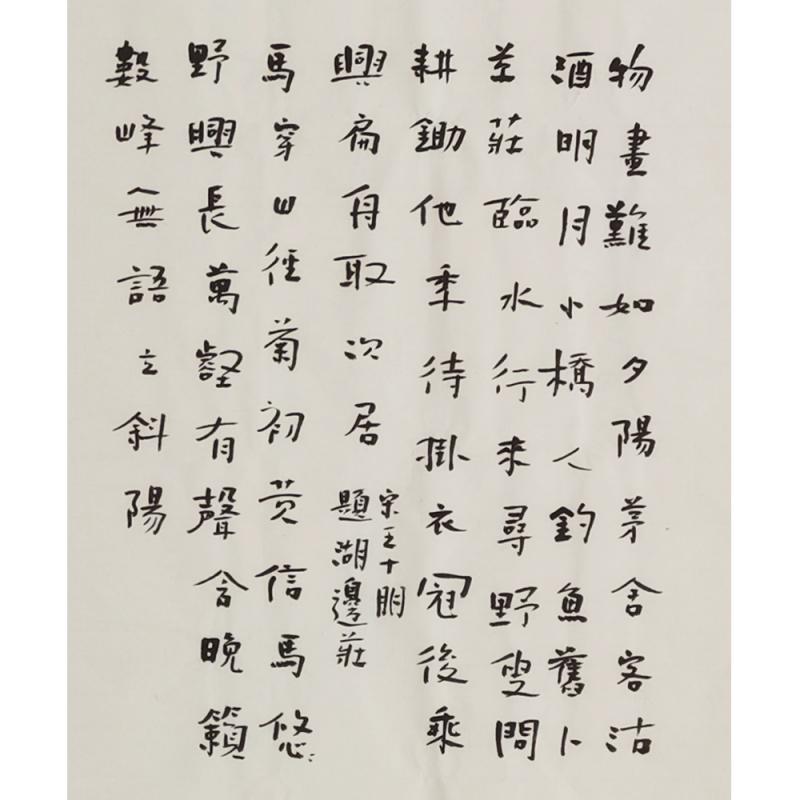 物畫難如夕陽茅舍客沽
酒明月小橋人釣魚舊卜
草莊臨水竹來尋野叟問
耕鋤他年待掛衣冠後乘
興扁舟取次居
宋王十朋
題湖邊莊
馬穿山徑菊初黄信馬悠々
野興長萬壑有聲含晚籟
數峰無語立斜陽